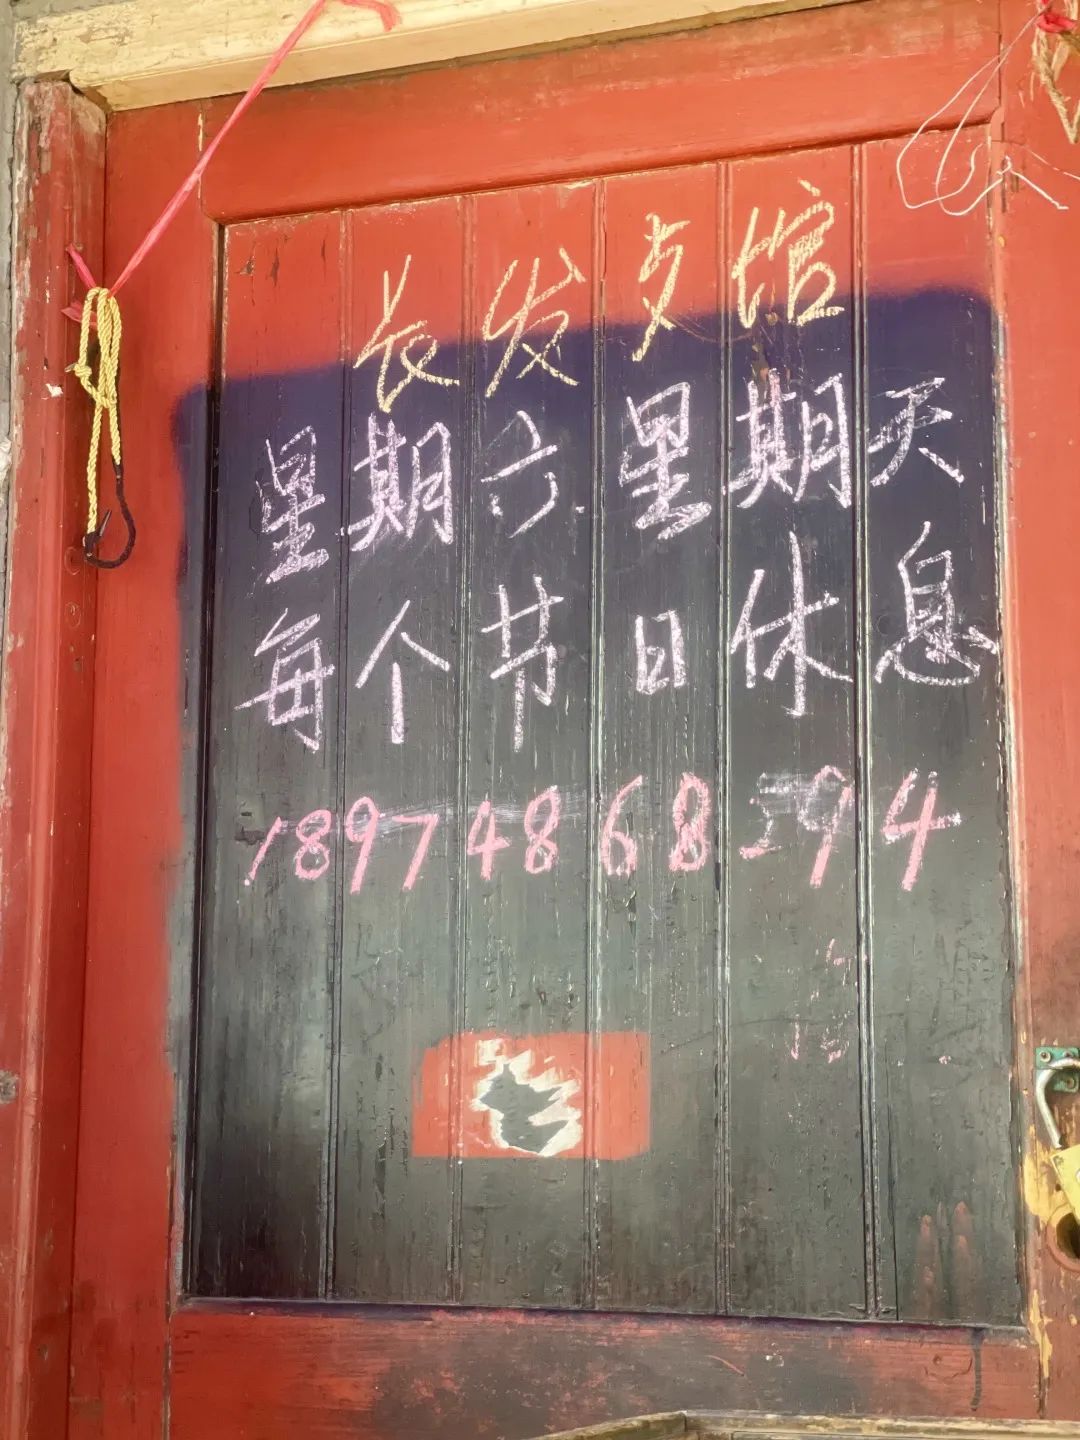 长发支馆
星期六星期天
每个节日休息
18974868294